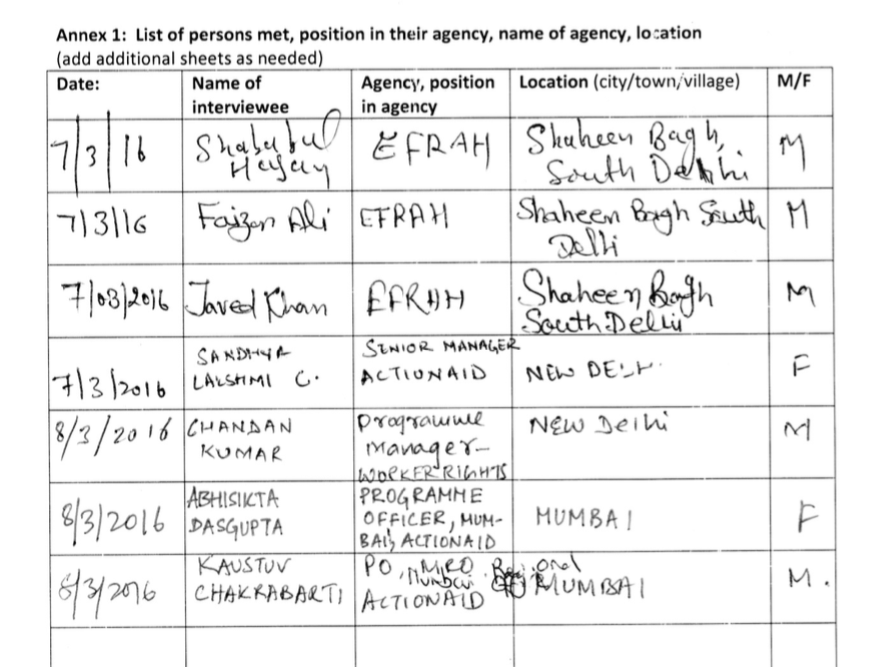 Annex 1: List of persons met, position in their agency, name of agency, location
(add additional sheets as needed)
Date: Name of interviewee Agency, position in agency Location (city/town/village) M/F
7/3/16 Shahabul Hasan EFRAH Shaheen Bagh, South Delhi M
7/3/16 Faizan Ali EFRAH Shaheen Bagh South Delhi M
7/03/2016 Javed Khan EFRAH Shaheen Bagh South Delhi M
7/3/2016 SANDHYA LAKSHMI C. SENIOR MANAGER ACTIONAID NEW DELHI. F
8/3/2016 CHANDAN KUMAR Programme Manager- WORKER RIGHTS NEW Delhi M
8/3/2016 ABHISIKTA DASGUPTA PROGRAMME OFFICER, MUMBAI, ACTIONAID MUMBAI F
8/3/2016 KAUSTUV CHAKRABARTI PO, MRO Mumbai Regional ACTIONAID MUMBAI M.